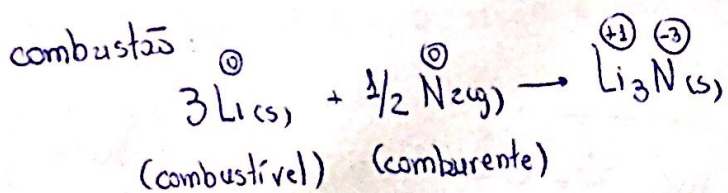 combustão:
0 0 +1 -3
3Li(s) + 1/2 N2(g) → Li3N(s)
(combustível) (comburente)